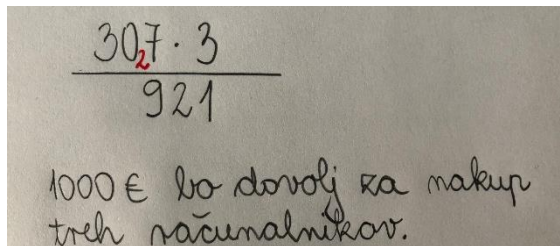 30₂7 · 3
921
1000 € bo dovolj za nakup
treh računalnikov.